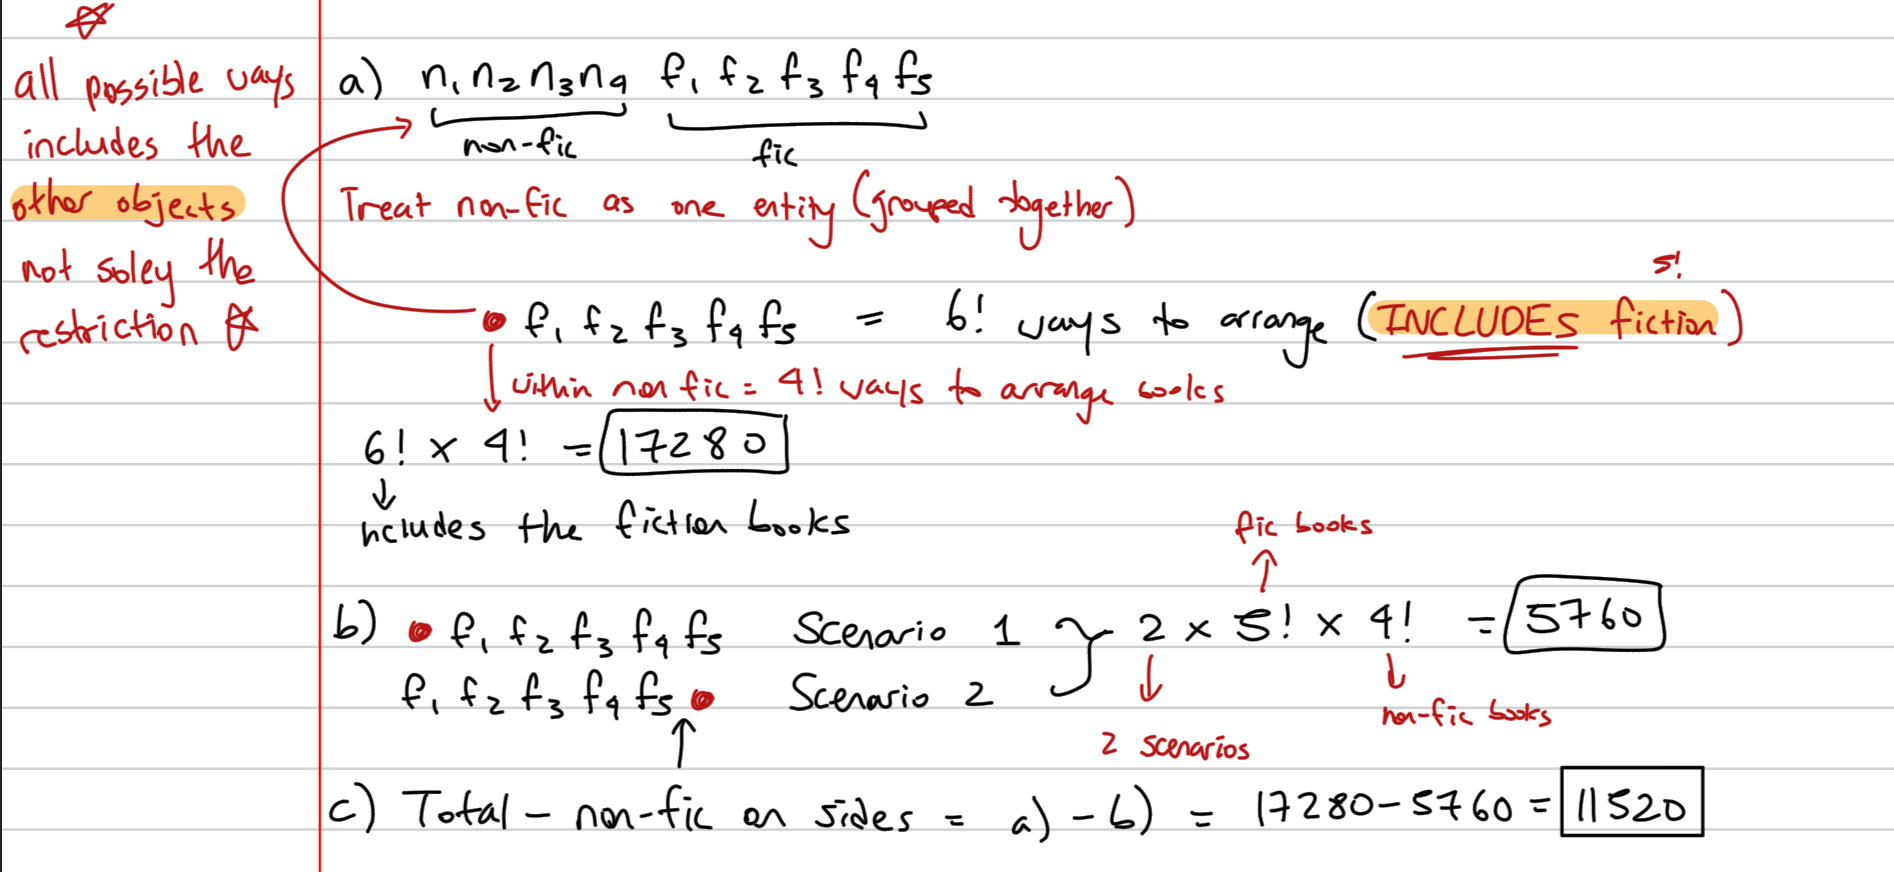 all possible ways
includes the
other objects
not soley the
restriction
a) n₁ n₂ n₃ n₄ f₁ f₂ f₃ f₄ f₅
non-fic fic
Treat non-fic as one entity (grouped together)
5!
f₁ f₂ f₃ f₄ f₅ = 6! ways to arrange (INCLUDES fiction)
within non fic = 4! ways to arrange books
6! × 4! = 17280
includes the fiction books
fic books
b) f₁ f₂ f₃ f₄ f₅ Scenario 1 } 2 × 5! × 4! = 5760
f₁ f₂ f₃ f₄ f₅ Scenario 2
non-fic books
2 scenarios
c) Total - non-fic on sides = a) - b) = 17280-5760 = 11520